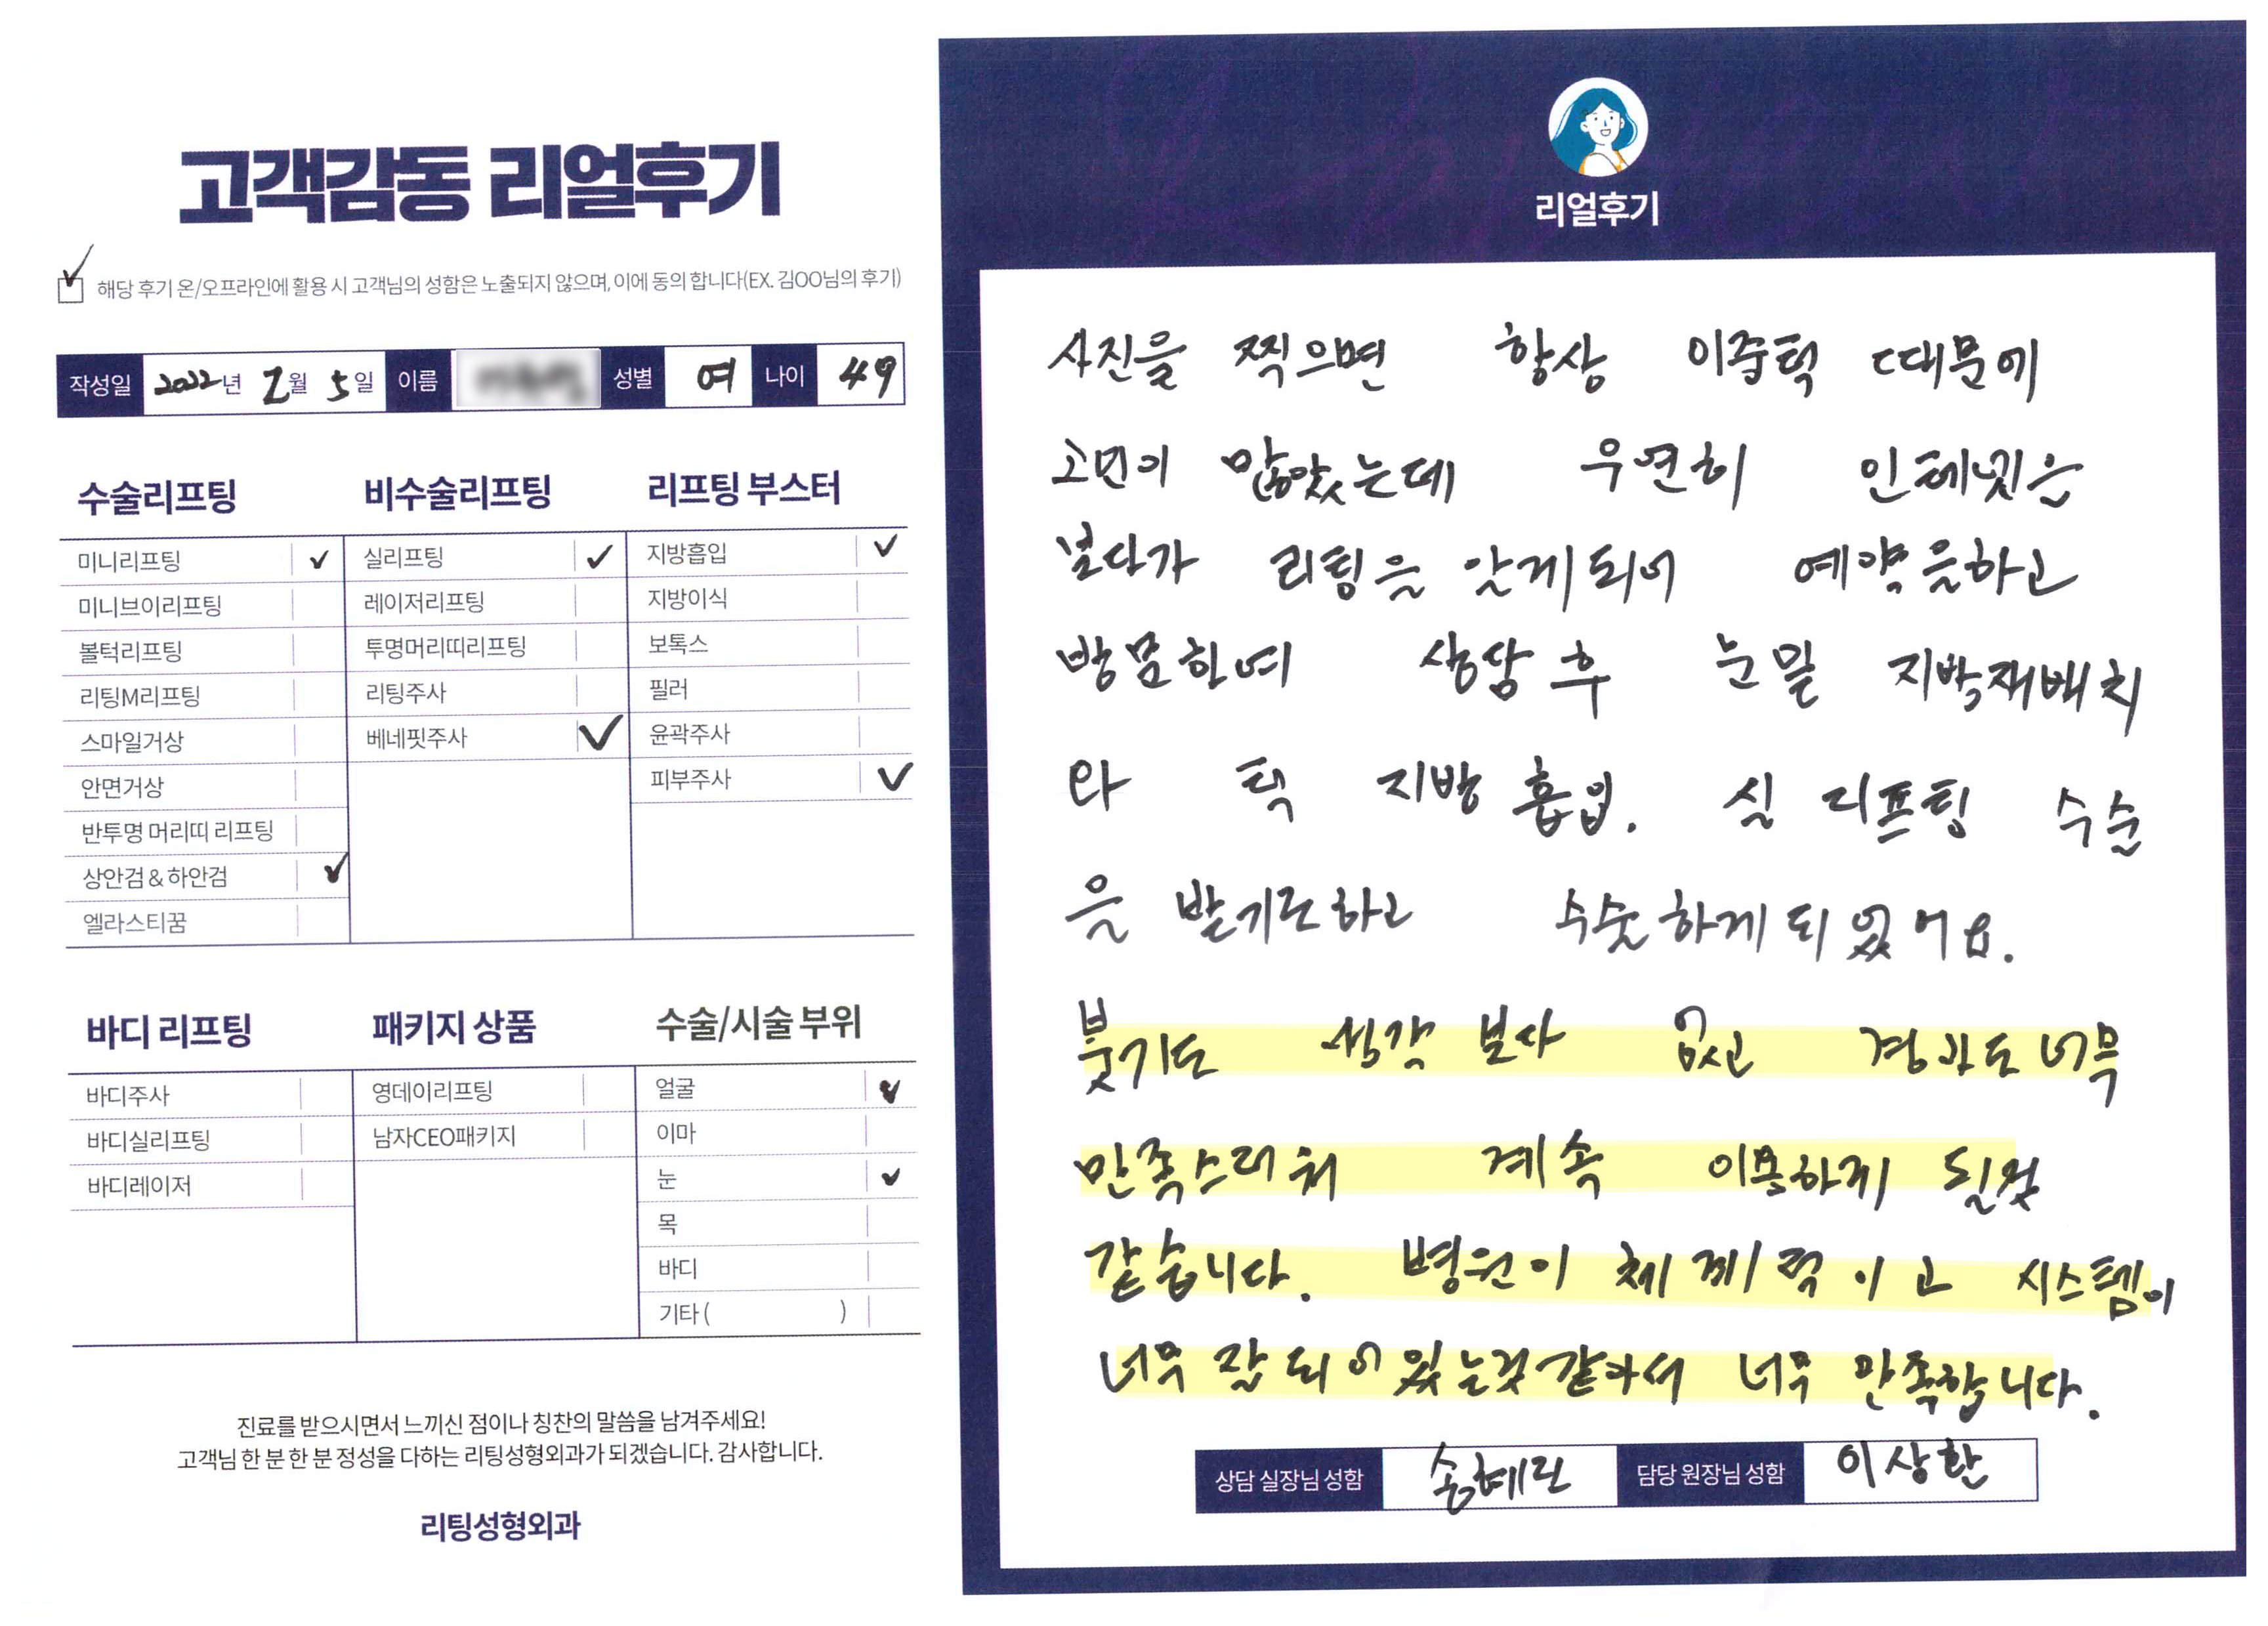 고객감동 리얼후기
해당 후기 온/오프라인에 활용 시 고객님의 성함은 노출되지 않으며, 이에 동의 합니다(EX. 김OO님의 후기)
작성일 2022년 2월 5일 이름 성별 여 나이 49
수술리프팅
미니리프팅 ✓
미니브이리프팅
볼턱리프팅
리팅M리프팅
스마일거상
안면거상
반투명 머리띠 리프팅
상안검 & 하안검 ✓
엘라스티꿈
비수술리프팅
실리프팅 ✓
레이저리프팅
투명머리띠리프팅
리팅주사
베네핏주사 ✓
리프팅 부스터
지방흡입 ✓
지방이식
보톡스
필러
윤곽주사
피부주사 ✓
바디 리프팅
바디주사
바디실리프팅
바디레이저
패키지 상품
영데이리프팅
남자CEO패키지
수술/시술 부위
얼굴 ✓
이마
눈 ✓
목
바디
기타 ( )
진료를 받으시면서 느끼신 점이나 칭찬의 말씀을 남겨주세요!
고객님 한 분 한 분 정성을 다하는 리팅성형외과가 되겠습니다. 감사합니다.
리팅성형외과
리얼후기
사진을 찍으면 항상 이중턱 때문에
고민이 많았는데 우연히 인테넷을
보다가 리팅을 알게되어 예약을하고
방문하여 상담후 눈밑 지방재배치
와 턱 지방흡입. 실 리프팅 수술
을 받기로하고 수술하게 되었어요.
붓기도 생각보다 없고 경과도 너무
만족스러워 계속 이용하게 될것
같습니다. 병원이 체계적이고 시스템이
너무 잘 되어있는것같아서 너무 만족합니다.
상담 실장님 성함 송혜린 담당 원장님 성함 이상환